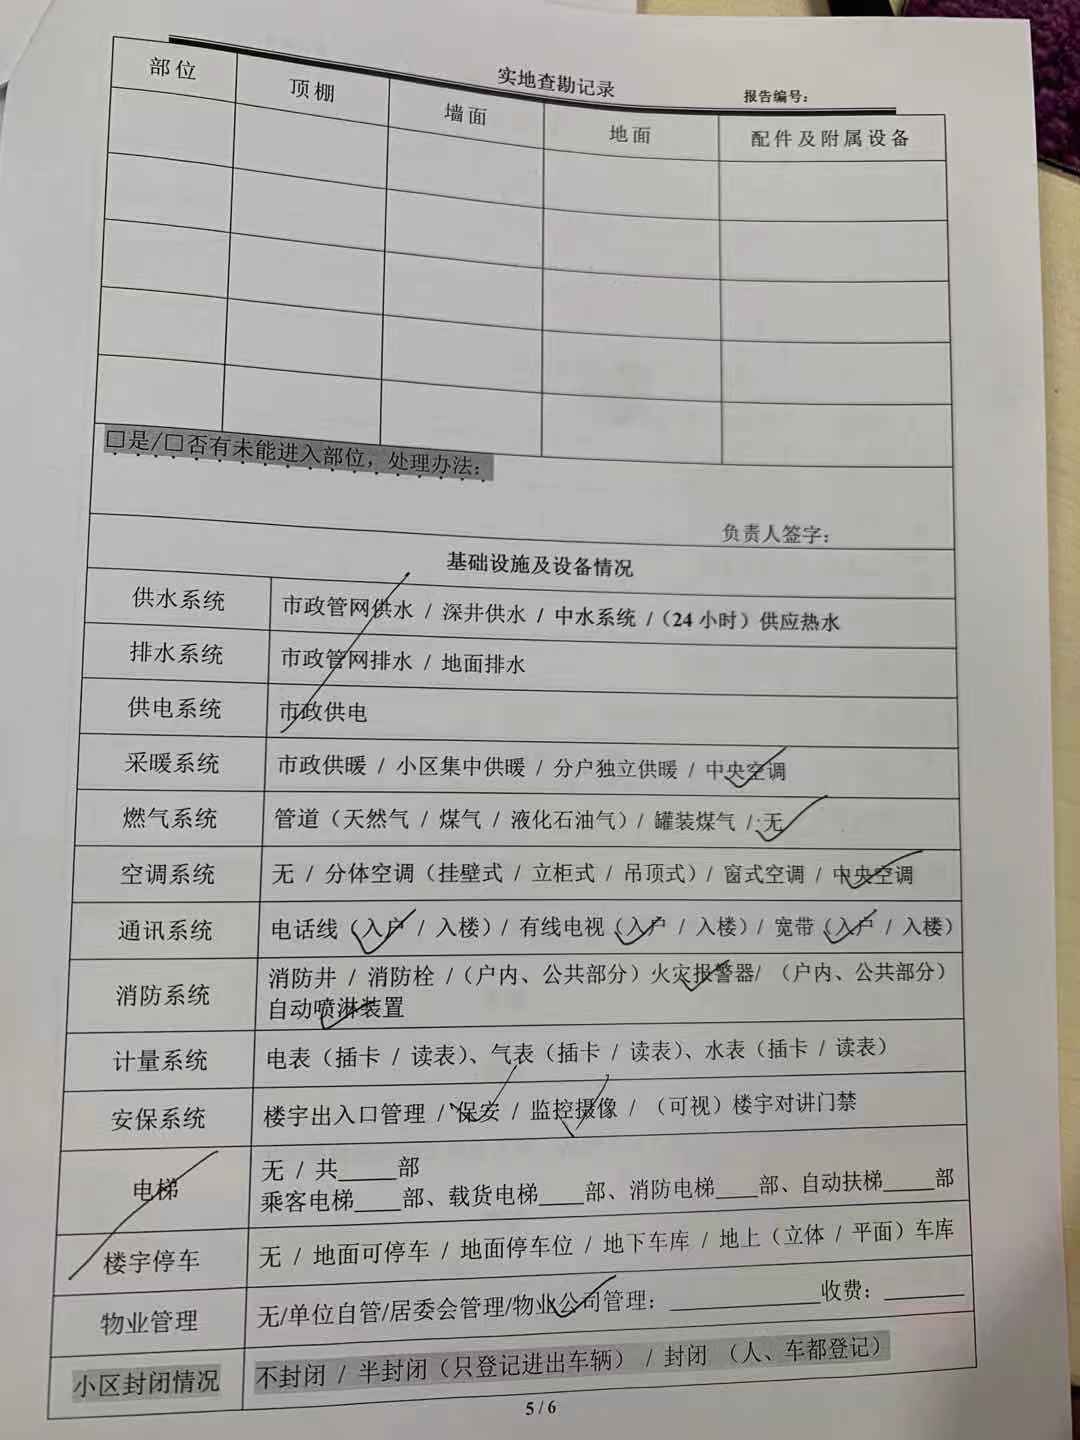 实地查勘记录
报告编号：
部位 顶棚 墙面 地面 配件及附属设备
□是/□否有未能进入部位，处理办法：
负责人签字：
基础设施及设备情况
供水系统 市政管网供水 / 深井供水 / 中水系统 /（24 小时）供应热水
排水系统 市政管网排水 / 地面排水
供电系统 市政供电
采暖系统 市政供暖 / 小区集中供暖 / 分户独立供暖 / 中央空调
燃气系统 管道（天然气 / 煤气 / 液化石油气）/ 罐装煤气 / 无
空调系统 无 / 分体空调（挂壁式 / 立柜式 / 吊顶式）/ 窗式空调 / 中央空调
通讯系统 电话线（入户 / 入楼）/ 有线电视（入户 / 入楼）/ 宽带（入户 / 入楼）
消防系统 消防井 / 消防栓 /（户内、公共部分）火灾报警器/ （户内、公共部分）
自动喷淋装置
计量系统 电表（插卡 / 读表）、气表（插卡 / 读表）、水表（插卡 / 读表）
安保系统 楼宇出入口管理 / 保安 / 监控摄像 / （可视）楼宇对讲门禁
电梯 无 / 共_____部
乘客电梯____部、载货电梯____部、消防电梯____部、自动扶梯____部
楼宇停车 无 / 地面可停车 / 地面停车位 / 地下车库 / 地上（立体 / 平面）车库
物业管理 无/单位自管/居委会管理/物业公司管理：_____________收费：_______
小区封闭情况 不封闭 / 半封闭（只登记进出车辆） / 封闭 （人、车都登记）
5 / 6